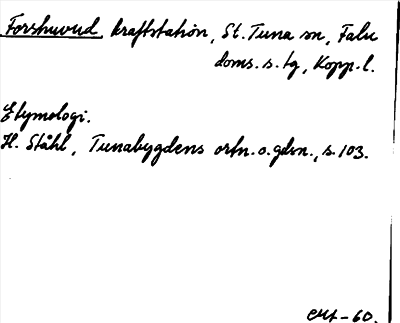 Forshuvud, kraftstation, St. Tuna sn, Falu
doms. s. tg, Kopp. l.
Etymologi.
H. Ståhl, Tunabygdens ortn. o. gdsn., s. 103.
-60.